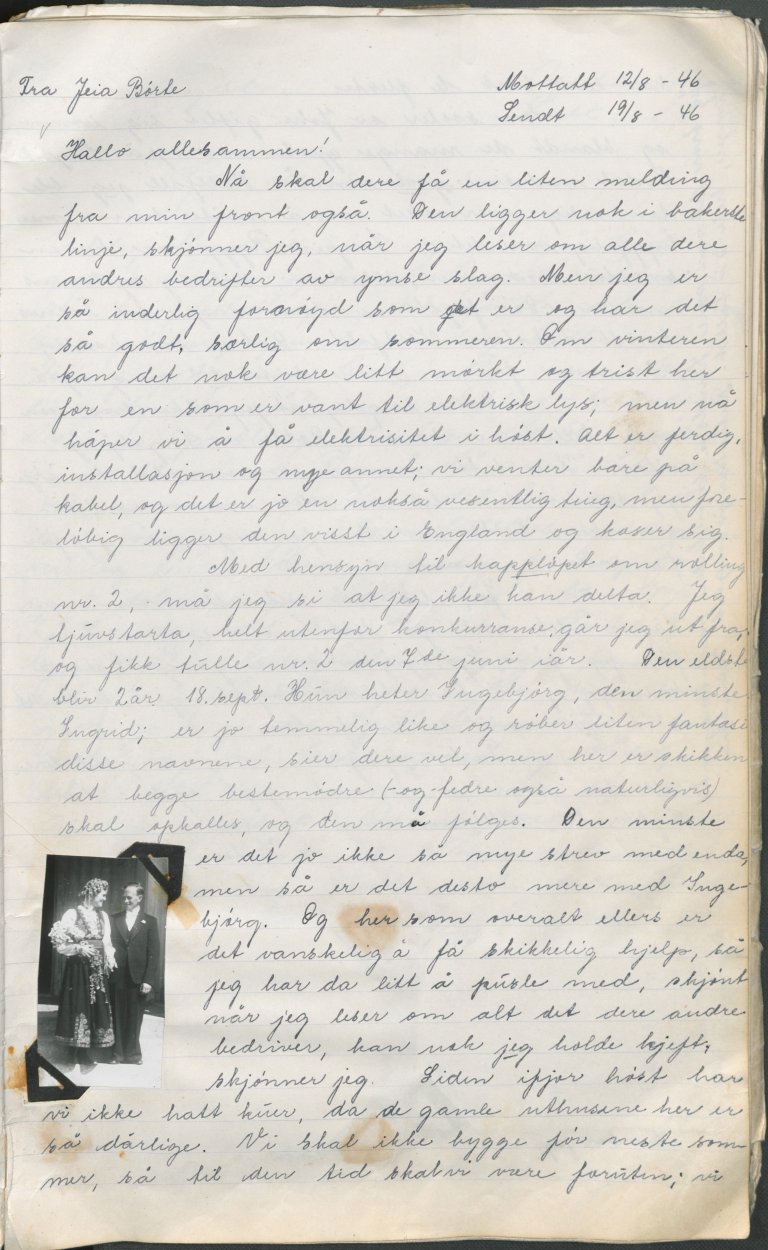 Fra Jeia Börte
Mottatt 12/8 - 46
Sendt 19/8 - 46
Hallo allesammen!
Nå skal dere få en liten melding
fra min front også. Den ligger nok i bakerste
linje, skjønner jeg, når jeg leser om alle dere
andres bedrifter av ymse slag. Men jeg er
så inderlig fornöyd som det er og har det
så godt, særlig om sommeren. Om vinteren
kan det nok være litt mörkt og trist her
for en som er vant til elektrisk lys; men nå
håper vi å få elektrisitet i höst. Alt er ferdig,
installasjon og mye annet; vi venter bare på
kabel, og det er jo en nokså vesentlig ting, men fore-
löbig ligger den visst i England og koser sig.
Med hensyn til kapplöpet om rolling
nr. 2, - må jeg si at jeg ikke kan delta. Jeg
tjuvstarta, helt utenfor konkurranse, går jeg ut fra,
og fikk tulle nr. 2 den 7de juni iår. Den eldste
blir 2 år 18. sept. Hun heter Ingebjörg, den minste
Ingrid; er jo temmelig like og röber liten fantasi
disse navnene, sier dere vel, men her er skikken
at begge bestemödre (-og-fedre også naturligvis)
skal opkalles, og den må fölges. Den minste
er det jo ikke så mye strev med enda,
men så er det desto mere med Inge-
björg. Og her som overalt ellers er
det vanskelig å få skikkelig hjelp, så
jeg har da litt å pusle med, skjönt
når jeg leser om alt det dere andre
bedriver, kan nok jeg holde kjeft,
skjönner jeg. Siden ifjor höst har
vi ikke hatt kuer, da de gamle uthusene her er
så dårlige. Vi skal ikke bygge för neste som-
mer, så til den tid skal vi være foruten; vi